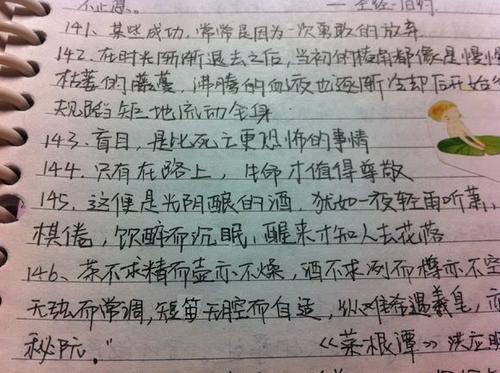 不止息。 —— 圣经·旧约
141、某些成功，常常是因为一次勇敢的放弃
142、在时光渐渐退去之后，当初的棱角都像是慢慢
枯萎的藤蔓，沸腾的血液也逐渐冷却后开始
规规矩矩地流动全身
143、盲目，是比死亡更恐怖的事情
144、只有在路上，生命才值得尊敬
145、这便是光阴酿的酒，犹如一夜轻雨听萧，
棋倦，饮醉而沉眠，醒来才知人去花落
146、茶不求精而壶亦不燥，酒不求冽而樽亦不空
无弦而常调，短笛无腔而自适，纵难希遇羲皇，亦
嵇阮。"
《菜根谭》洪应明